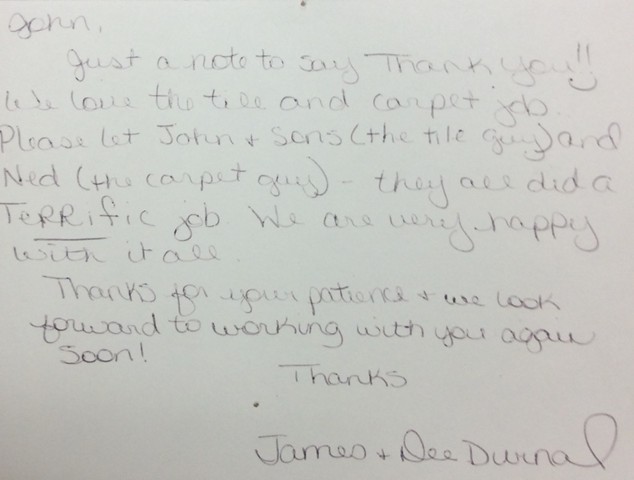 John,
Just a note to say Thank you!!
We love the tile and carpet job.
Please let John + Sons (the tile guy) and
Ned (the carpet guy) - they all did a
TERRific job. We are very happy
with it all.
Thanks for your patience + we look
forward to working with you again
soon!
Thanks
James + Dee Durnal